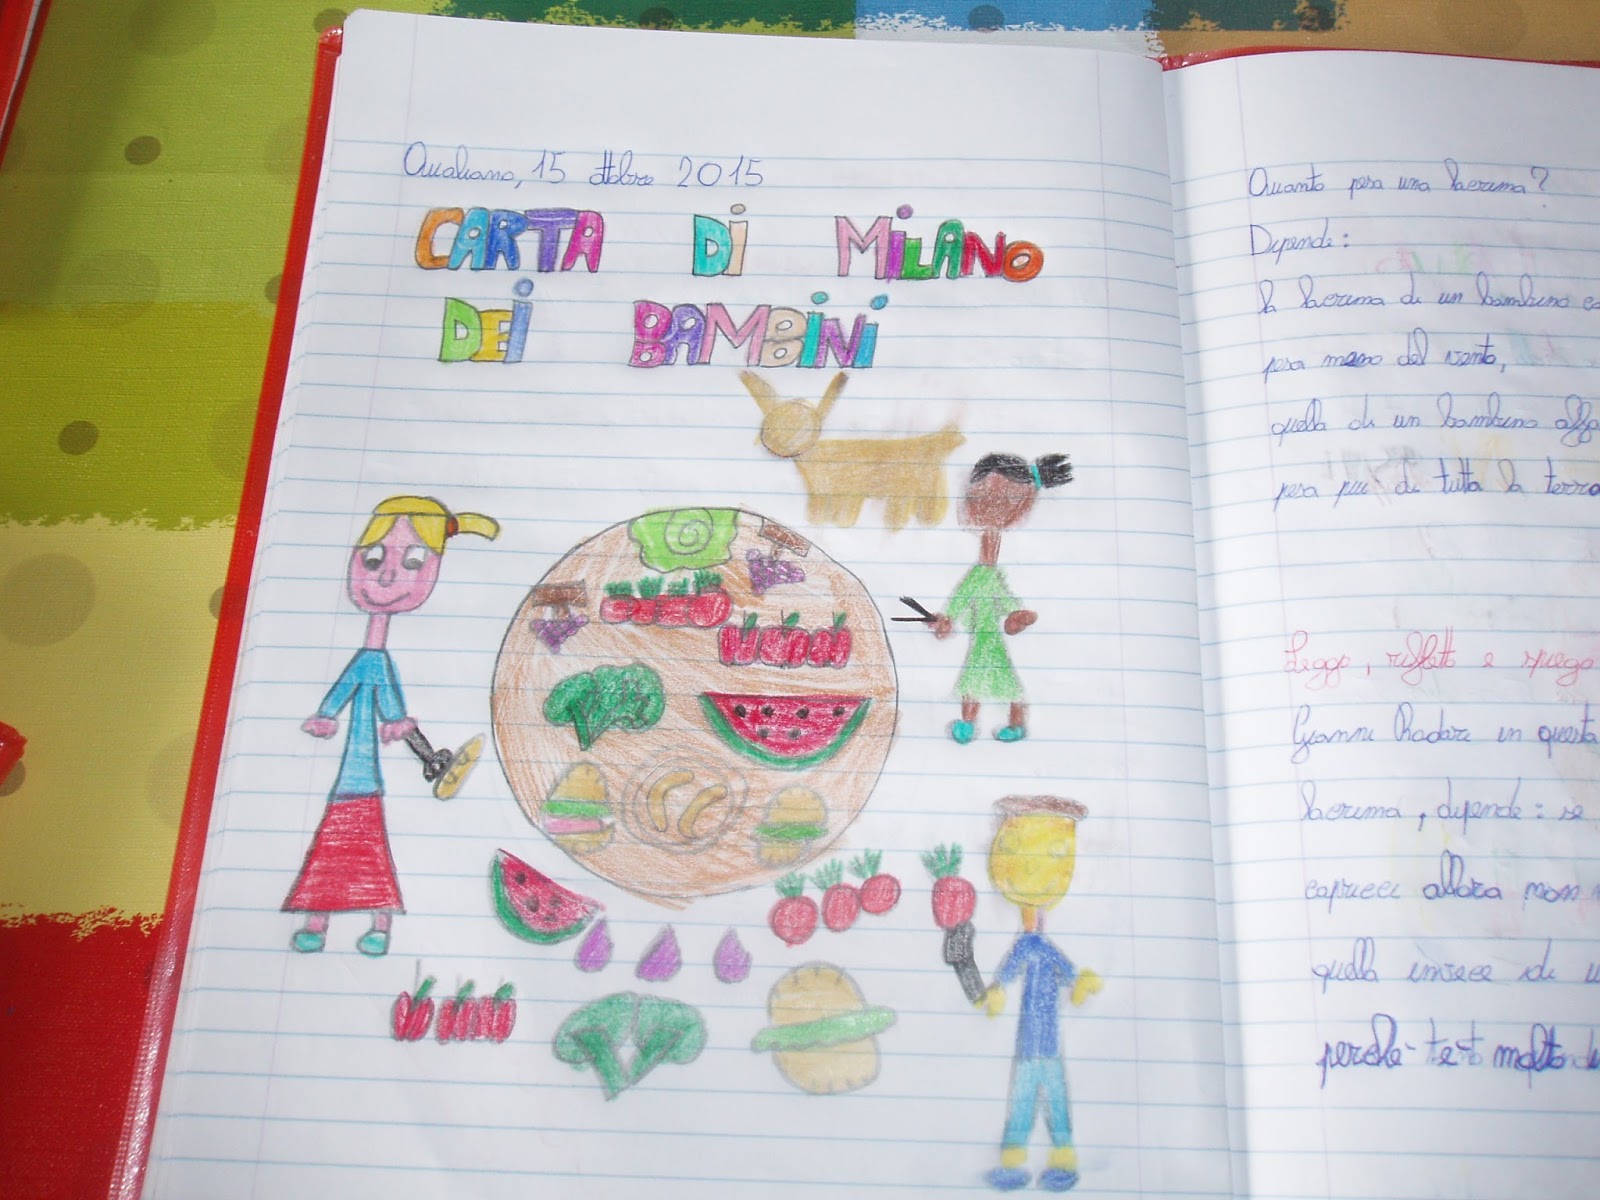 Qualiano, 15 ottobre 2015
CARTA Di MiLANO
DEi BAMBiNi
Quanto pesa una lacrima?
Dipende:
la lacrima di un bambino ca
pesa meno del vento,
quella di un bambino affa
pesa più di tutta la terra
Leggo, rifletto e spiego
Gianni Rodari in questa
lacrima, dipende: se
capricci allora non
quella invece di u
perché